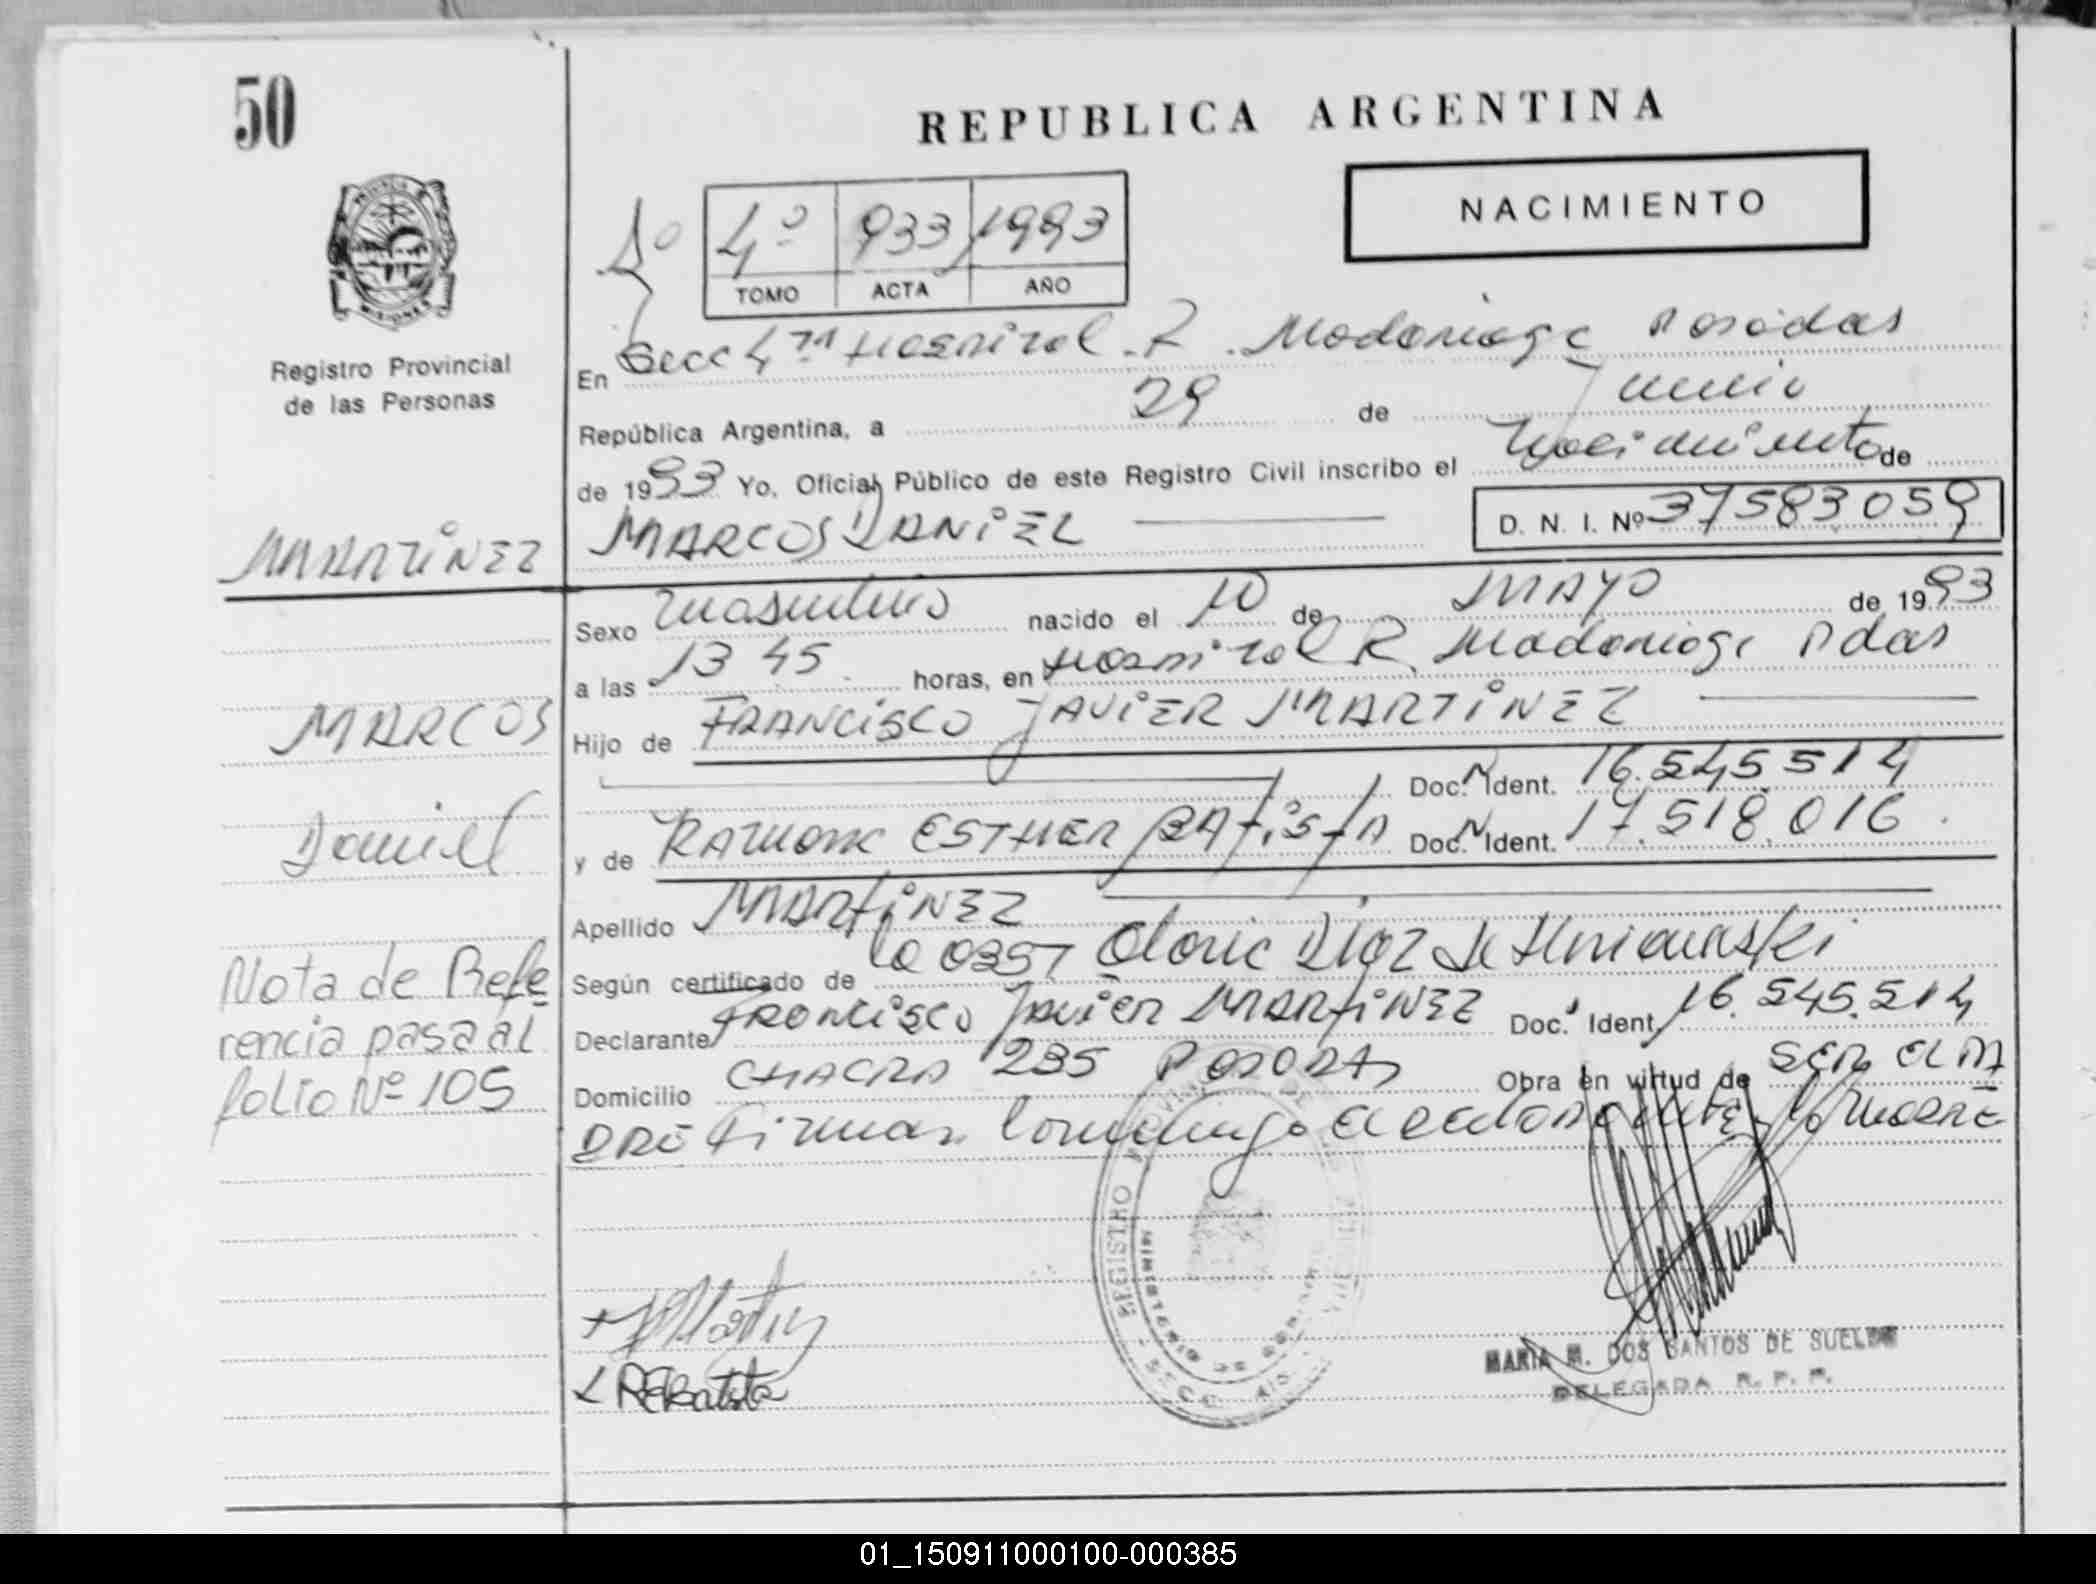 50
REPUBLICA ARGENTINA
NACIMIENTO
4º 933 1993
TOMO ACTA AÑO
Registro Provincial
de las Personas
En Secc 4ta Hospital R. Madariaga Posadas
República Argentina, a 29 de Junio
de 1993 Yo, Oficial Público de este Registro Civil inscribo el Nacimiento de
MARTINEZ MARCOS DANIEL D. N. I. Nº 37583059
Sexo Masculino nacido el 10 de MAYO de 1993
a las 13 45 horas, en Hospital R. Madariaga Pdas
MARCOS
Hijo de FRANCISCO JAVIER MARTINEZ
Doc. N Ident. 16.545.514
Daniel
y de RAMONA ESTHER BATISTA Doc. N Ident. 17.518.016
Apellido MARTINEZ
Según certificado de la 0357 Diaz de
Declarante Francisco Javier MARTINEZ Doc. Ident. 16.545.514
Domicilio CHACRA 235 POSADAS Obra en virtud de SER EL PA
DRE Firman la Madre
Nota de Refe
rencia pasa al
folio Nº 105
REGISTRO PROVINCIAL DE LAS
MINISTERIO DE GOBIERNO
R E Batista
MARIA M. DOS SANTOS DE SUELDO
DELEGADA R. P. P.
01_150911000100-000385